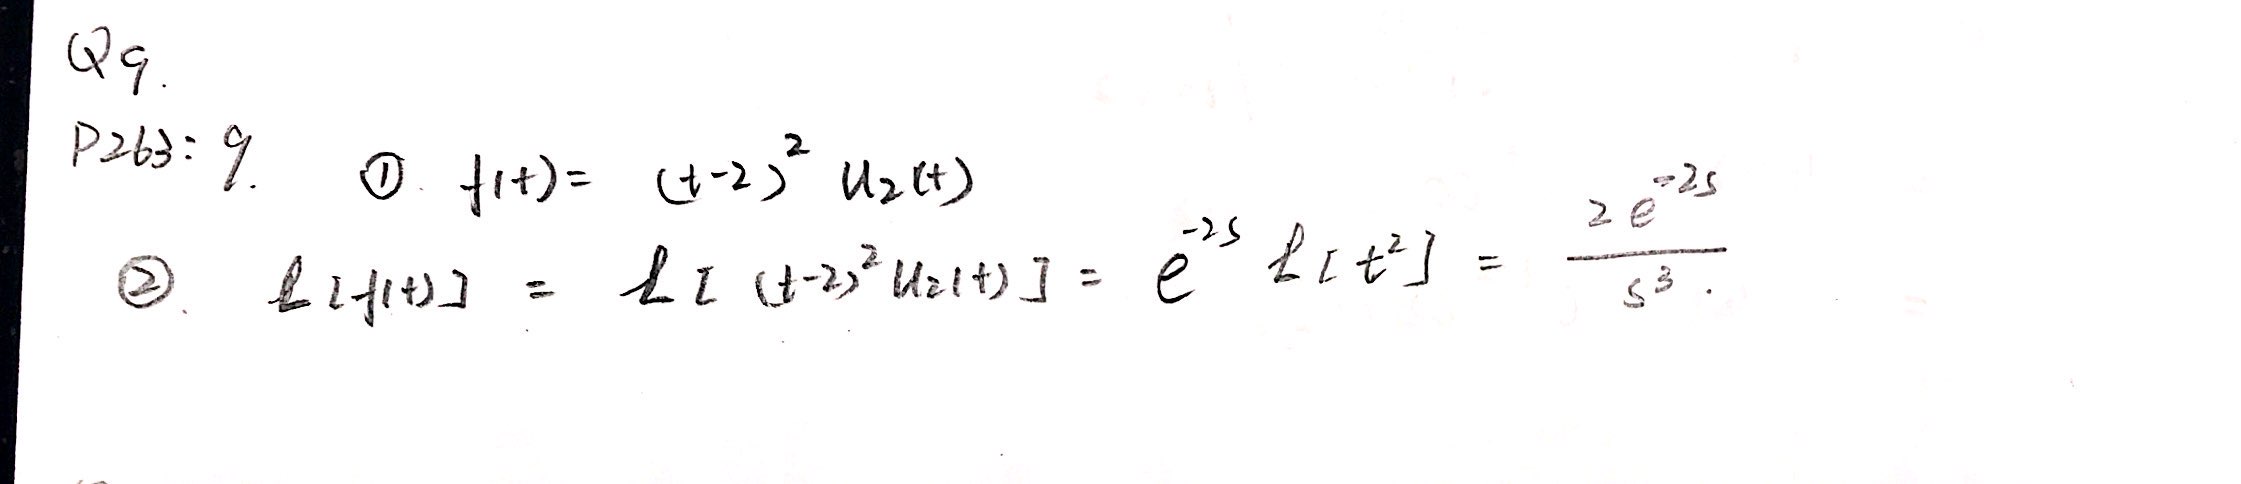 Q9.
P263: 9. ① f(t) = (t-2)² u₂(t)
②. ℒ[f(t)] = ℒ[(t-2)² u₂(t)] = e⁻²ˢ ℒ[t²] = 2e⁻²ˢ / s³.